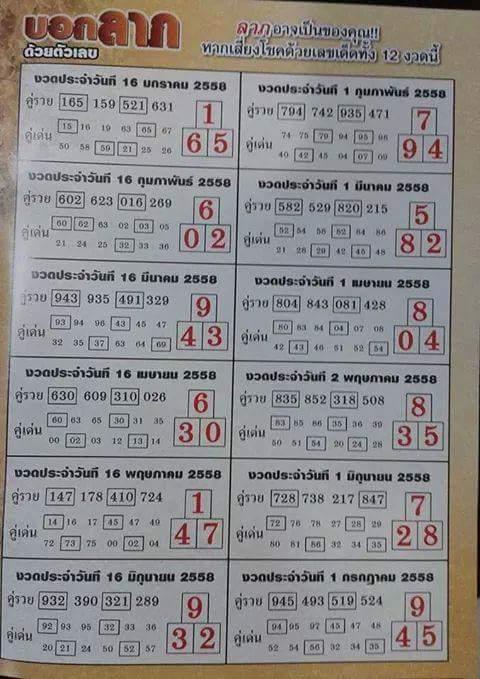 บอกลาภ
ด้วยตัวเลข
ลาภอาจเป็นของคุณ!!
หากเสี่ยงโชคด้วยเลขเด็ดทั้ง 12 งวดนี้
งวดประจำวันที่ 16 มกราคม 2558
คู่รวย 165 159 521 631
1
คู่เด่น
15 16 19 63 65 67
50 58 59 21 25 26
6 5
งวดประจำวันที่ 1 กุมภาพันธ์ 2558
คู่รวย 794 742 935 471
7
คู่เด่น
74 75 79 94 95 96
40 42 45 04 07 09
9 4
งวดประจำวันที่ 16 กุมภาพันธ์ 2558
คู่รวย 602 623 016 269
6
คู่เด่น
60 62 63 02 03 05
21 24 25 32 33 36
0 2
งวดประจำวันที่ 1 มีนาคม 2558
คู่รวย 582 529 820 215
5
คู่เด่น
52 54 56 82 84 86
21 28 29 42 45 48
8 2
งวดประจำวันที่ 16 มีนาคม 2558
คู่รวย 943 935 491 329
9
คู่เด่น
93 94 96 43 45 47
32 35 37 63 64 69
4 3
งวดประจำวันที่ 1 เมษายน 2558
คู่รวย 804 843 081 428
8
คู่เด่น
80 83 84 04 07 08
42 43 46 51 52 54
0 4
งวดประจำวันที่ 16 เมษายน 2558
คู่รวย 630 609 310 026
6
คู่เด่น
60 63 65 30 31 35
00 02 03 12 13 14
3 0
งวดประจำวันที่ 2 พฤษภาคม 2558
คู่รวย 835 852 318 508
8
คู่เด่น
83 85 86 35 36 39
50 51 54 20 24 28
3 5
งวดประจำวันที่ 16 พฤษภาคม 2558
คู่รวย 147 178 410 724
1
คู่เด่น
14 16 17 45 47 49
72 73 75 00 02 04
4 7
งวดประจำวันที่ 1 มิถุนายน 2558
คู่รวย 728 738 217 847
7
คู่เด่น
72 76 78 27 28 29
80 81 86 32 34 35
2 8
งวดประจำวันที่ 16 มิถุนายน 2558
คู่รวย 932 390 321 289
9
คู่เด่น
92 93 95 32 33 36
20 21 24 50 52 57
3 2
งวดประจำวันที่ 1 กรกฎาคม 2558
คู่รวย 945 493 519 524
9
คู่เด่น
94 95 97 45 47 48
52 54 56 32 34 35
4 5